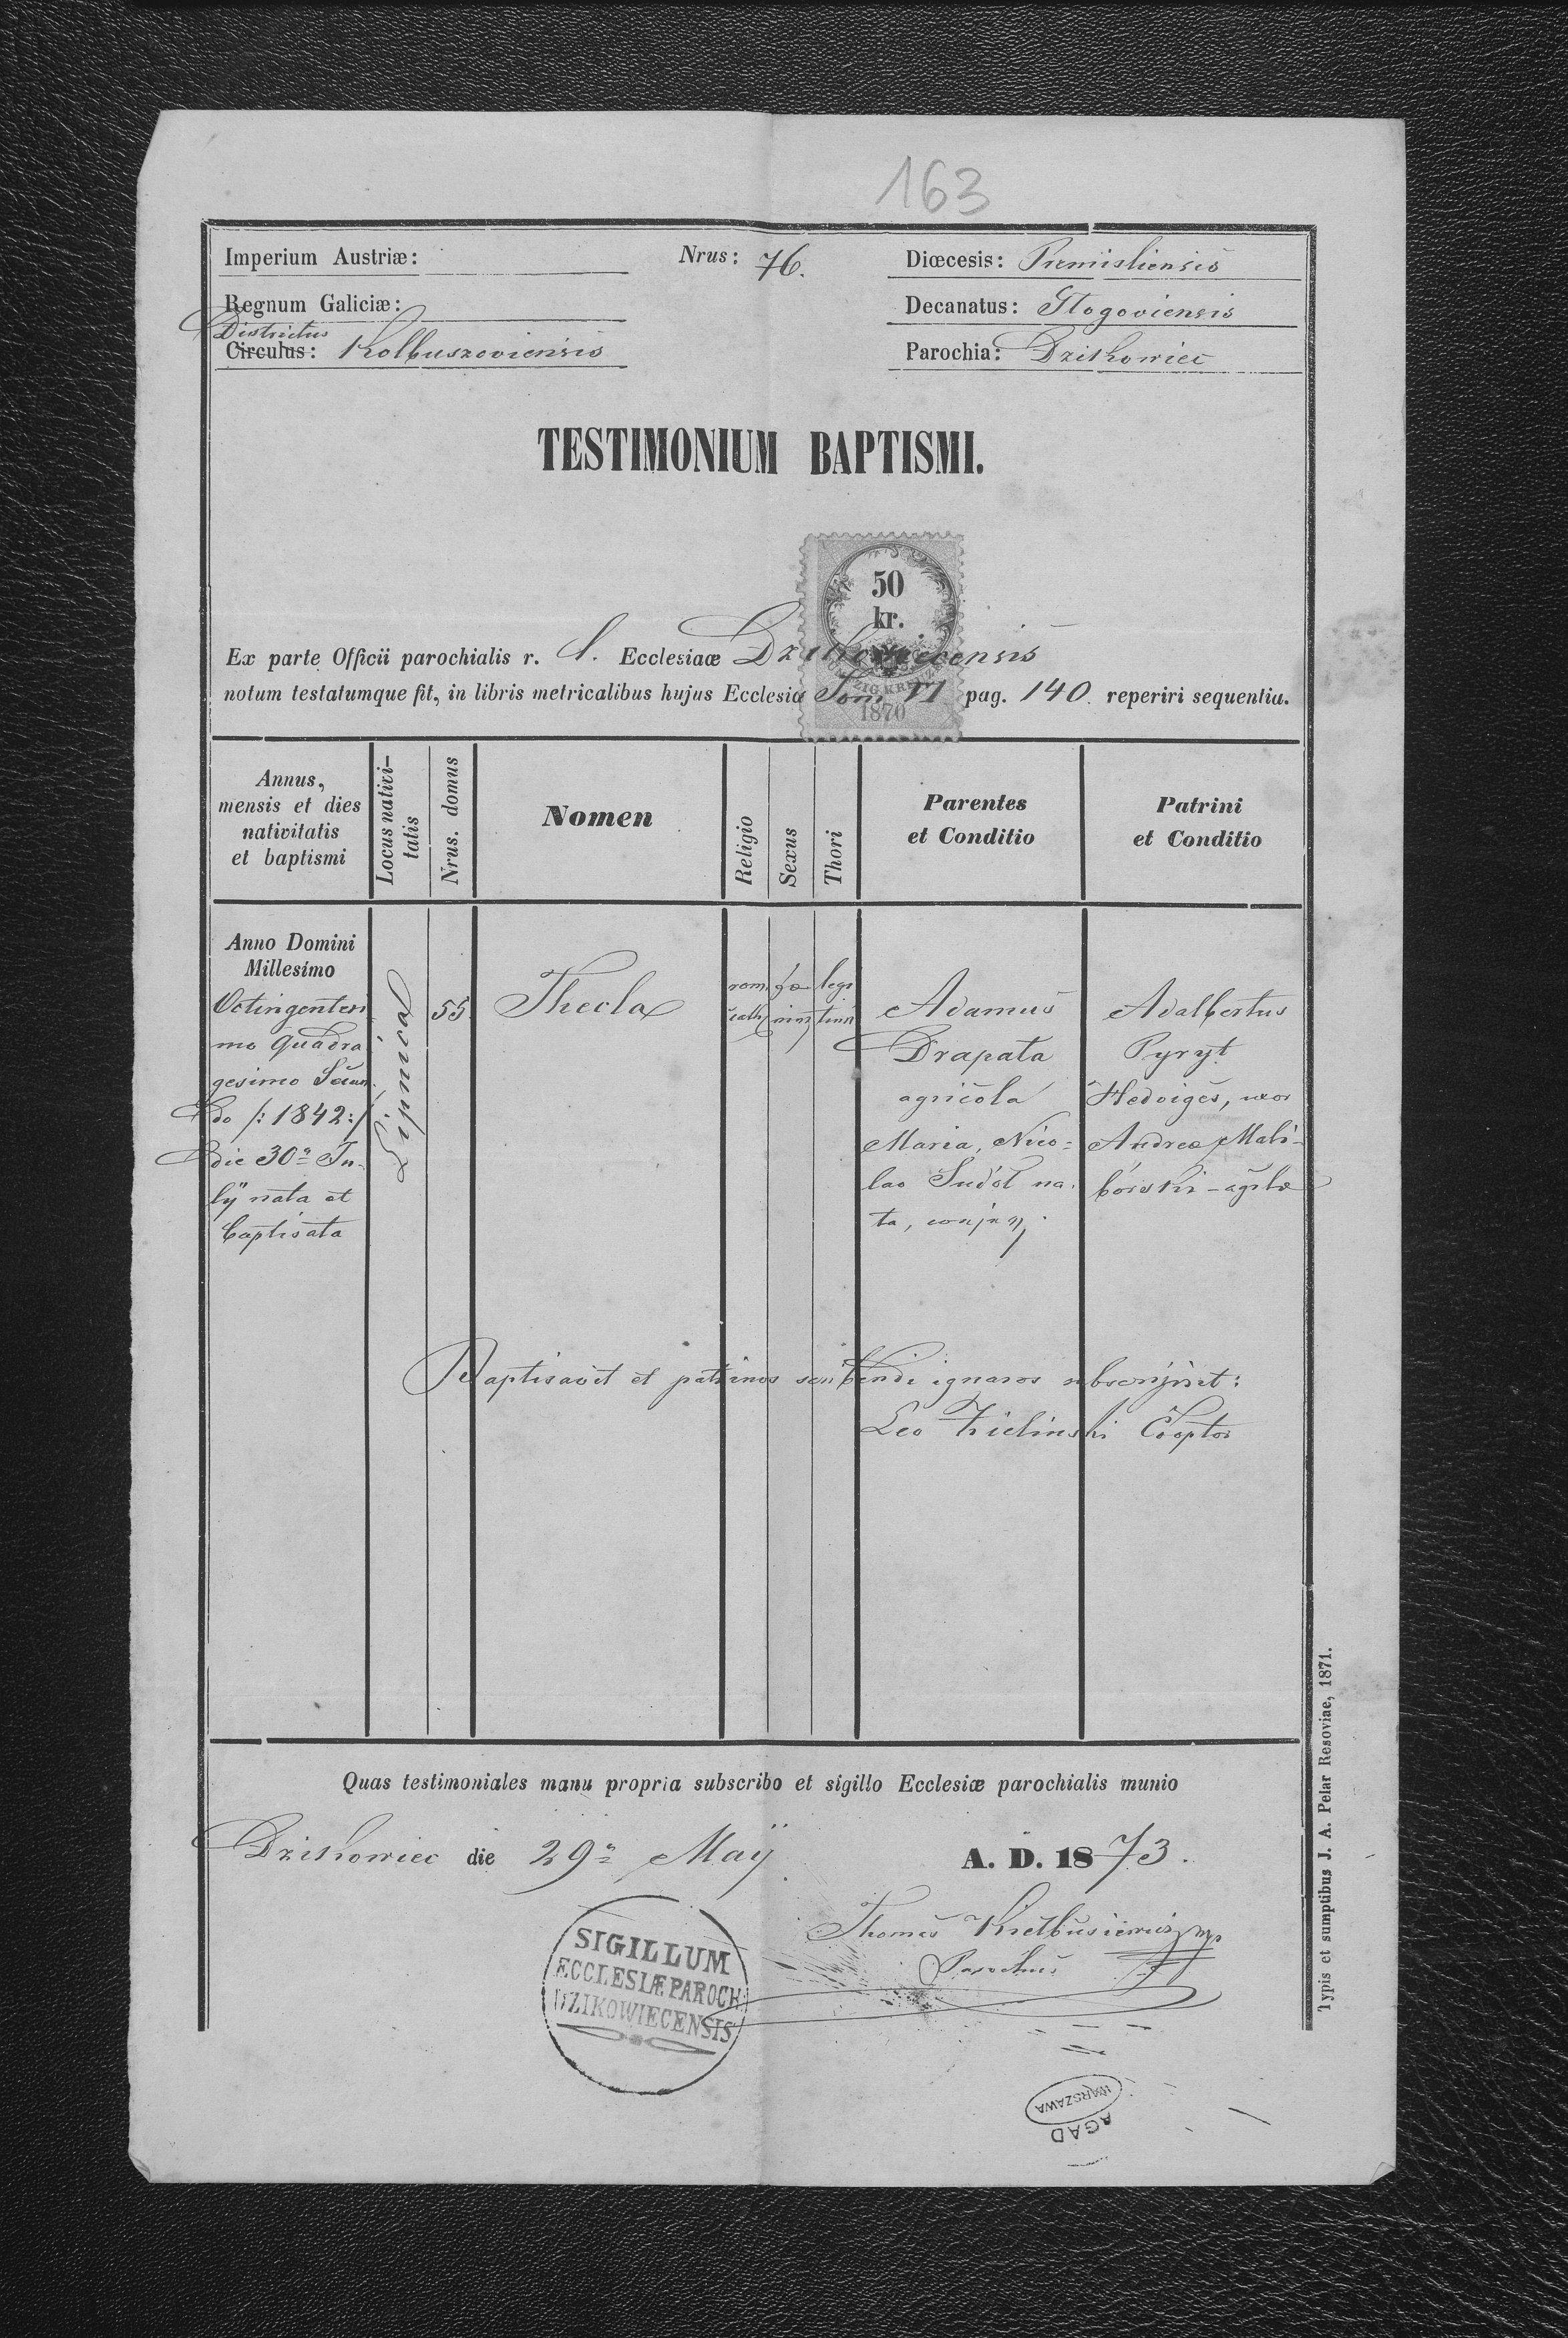 163
Imperium Austriæ:
Nrus: 76.
Diœcesis: Premisliensis
Regnum Galiciæ:
Decanatus: Głogoviensis
Districtus
Circulus: Kolbuszoviensis
Parochia: Dzikowiec
TESTIMONIUM BAPTISMI.
50
kr.
1870
Ex parte Officii parochialis r. l. Ecclesiaæ Dzikowiecensis
notum testatumque fit, in libris metricalibus hujus Ecclesiæ Tom VI pag. 140. reperiri sequentia.
Annus,
mensis et dies
nativitatis
et baptismi
Locus nativi-
tatis
Nrus. domus
Nomen
Religio
Sexus
Thori
Parentes
et Conditio
Patrini
et Conditio
Anno Domini
Millesimo
Octingentesi
mo Quadra
gesimo Secun
do /: 1842 :/
die 30a Ju-
lÿ nata et
baptisata
Lipnica
55.
Thecla
rom.
cath.
fæ
min.
legi
timi
Adamus
Drapata
agricola
Maria, Nico-
lao Sudoł na-
ta, conjux.
Adalbertus
Pyryt
Hedviges, uxor
Andreæ Mali-
borski - agrlæ
Baptisavit et patrinos scribendi ignaros subscripsit:
Leo Zielinski Cooptor
Quas testimoniales manu propria subscribo et sigillo Ecclesiæ parochialis munio
Dzikowiec die 29a Maÿ A. D. 1873.
Thomas mp
Parochus
SIGILLUM
ECCLESIÆ PAROCH:
DZIKOWIECENSIS
WARSZAWA
AGAD
Typis et sumptibus J. A. Pelar Resoviae, 1871.